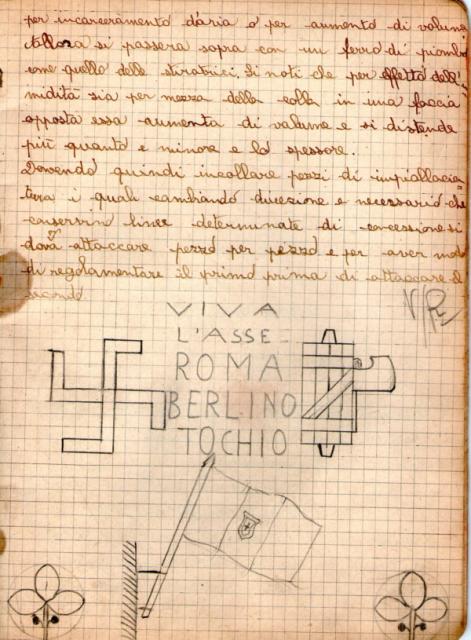 per incarceramento d'aria o per aumento di volume
Allora si passera sopra con un ferro di piombo
come quello delle stiratrici. Si noti che per effetto dell'
midità sia per mezzo della colla in una faccia
opposta essa aumenta di volume e si distende
più quanto e minore e lo spessore.
Dovendo quindi incollare pezzi di impiallacia=
tura i quali cambiando direzione e necessario che
conservin linee determinate di concessione si
dovrà attaccare pezzo per pezzo e per aver modo
di regolamentare il primo prima di attaccare il
secondo
VIVA
L'ASSE
ROMA
BERLINO
TOCHIO